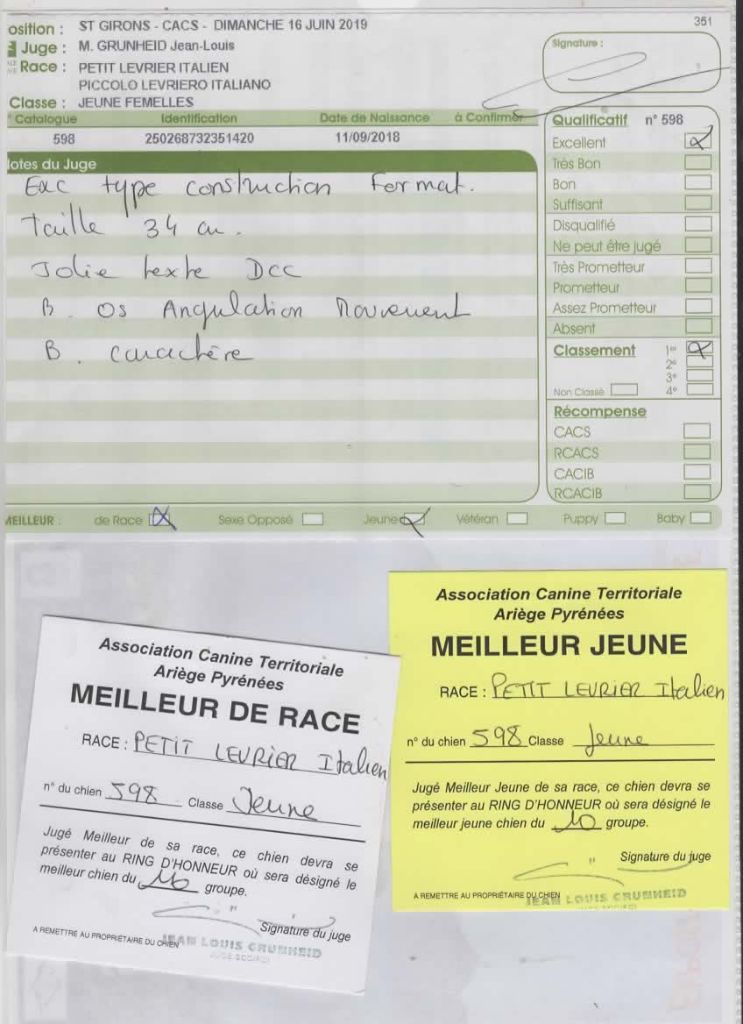 351
osition : ST GIRONS - CACS - DIMANCHE 16 JUIN 2019
Juge : M. GRUNHEID Jean-Louis
Race : PETIT LEVRIER ITALIEN
PICCOLO LEVRIERO ITALIANO
Classe : JEUNE FEMELLES
Signature :
Catalogue Identification Date de Naissance à Confirmer
598 250268732351420 11/09/2018
otes du Juge
Exc type construction Format.
Taille 34 cm.
Jolie texte Dcc
B. os Angulation Mouvement
B. caractère
Qualificatif n° 598
Excellent
Très Bon
Bon
Suffisant
Disqualifié
Ne peut être jugé
Très Prometteur
Prometteur
Assez Prometteur
Absent
Classement 1er
2e
3e
Non Classé 4e
Récompense
CACS
RCACS
CACIB
RCACIB
MEILLEUR : de Race Sexe Opposé Jeune Vétéran Puppy Baby
Association Canine Territoriale
Ariège Pyrénées
MEILLEUR DE RACE
RACE : PETIT LEVRIER Italien
n° du chien 598 Classe Jeune
Jugé Meilleur de sa race, ce chien devra se
présenter au RING D'HONNEUR où sera désigné le
meilleur chien du 10 groupe.
Signature du juge
A REMETTRE AU PROPRIÉTAIRE DU CHIEN
JEAN LOUIS GRUNHEID
Association Canine Territoriale
Ariège Pyrénées
MEILLEUR JEUNE
RACE : PETIT LEVRIER Italien
n° du chien 598 Classe Jeune
Jugé Meilleur Jeune de sa race, ce chien devra se
présenter au RING D'HONNEUR où sera désigné le
meilleur jeune chien du 10 groupe.
Signature du juge
A REMETTRE AU PROPRIÉTAIRE DU CHIEN
JEAN LOUIS GRUNHEID